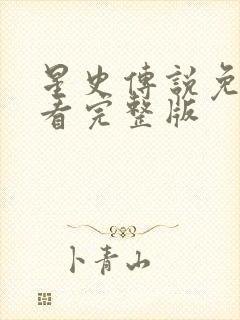 星史傳說免
看完整版
卜青山